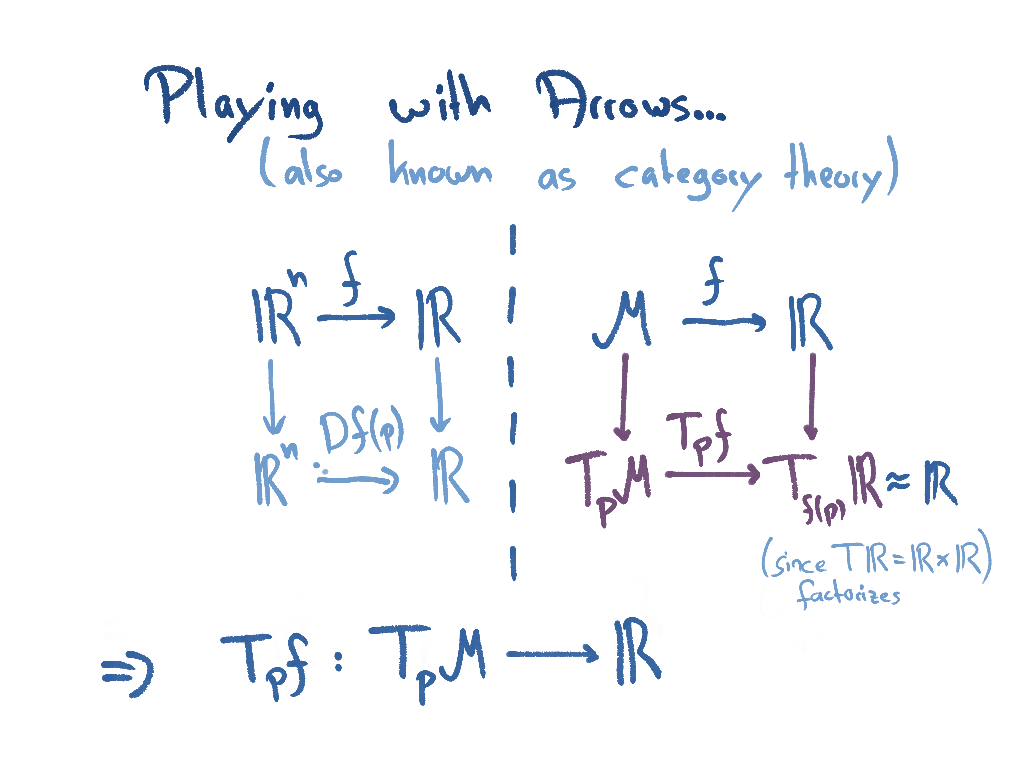 Playing with Arrows...
(also known as category theory)
ℝⁿ f→ ℝ
M f→ ℝ
ℝⁿ Df(p) ⇢ ℝ
TₚM Tₚf→ T_f(p) ℝ ≈ ℝ
(since Tℝ = ℝ × ℝ)
factorizes
⇒ Tₚf : TₚM → ℝ